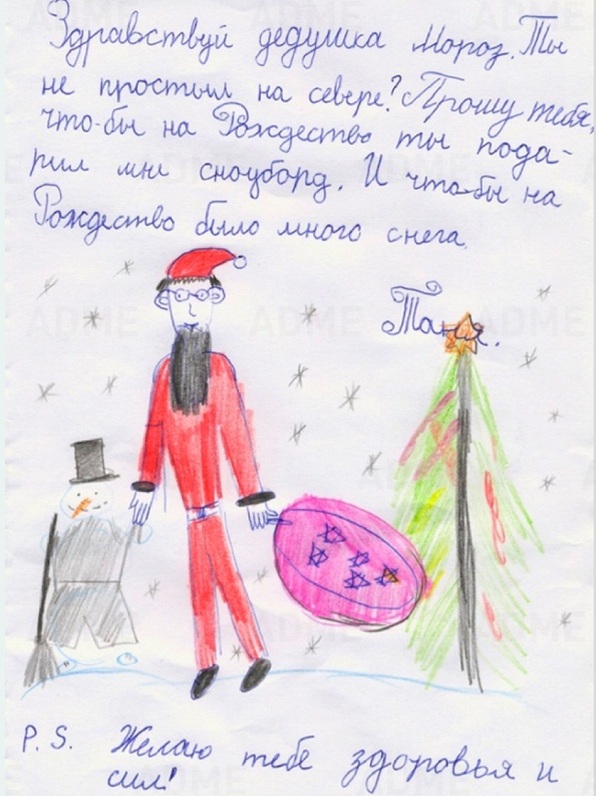 Здравствуй дедушка Мороз. Ты
не простыл на севере? Прошу тебя,
что-бы на Рождество ты пода-
рил мне сноуборд. И что-бы на
Рождество было много снега.
Таня.
P.S. Желаю тебе здоровья и
сил!
ADME
ADME
ADME